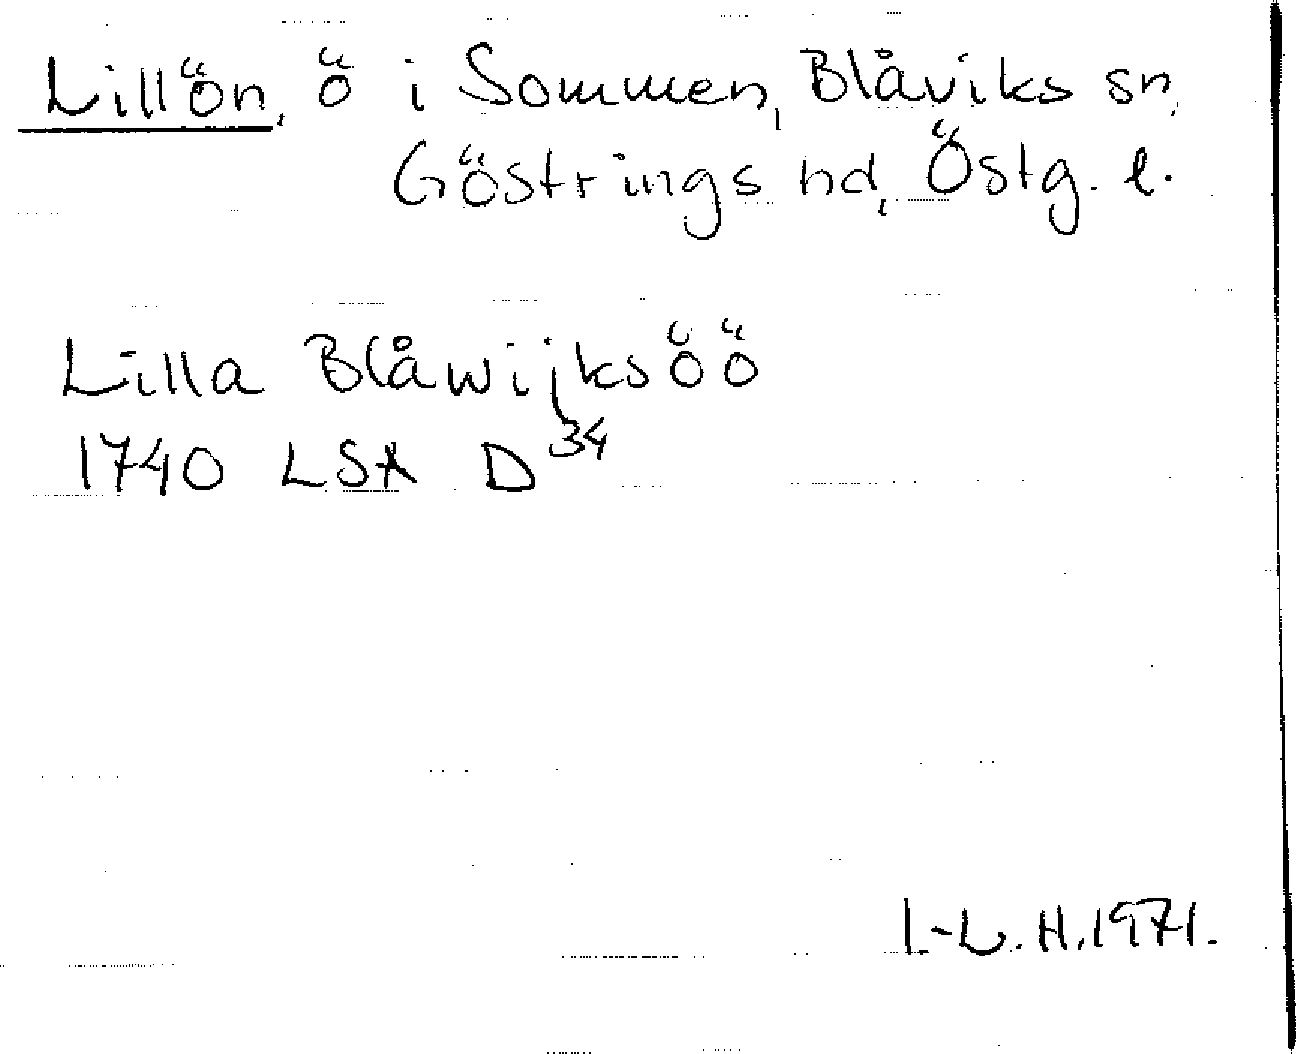 Lillön, ö i Sommen, Blåviks sn,
Göstrings hd, Östg. l.
Lilla Blåwijksöö
1740 LSA D34
I.-L. H. 1971.